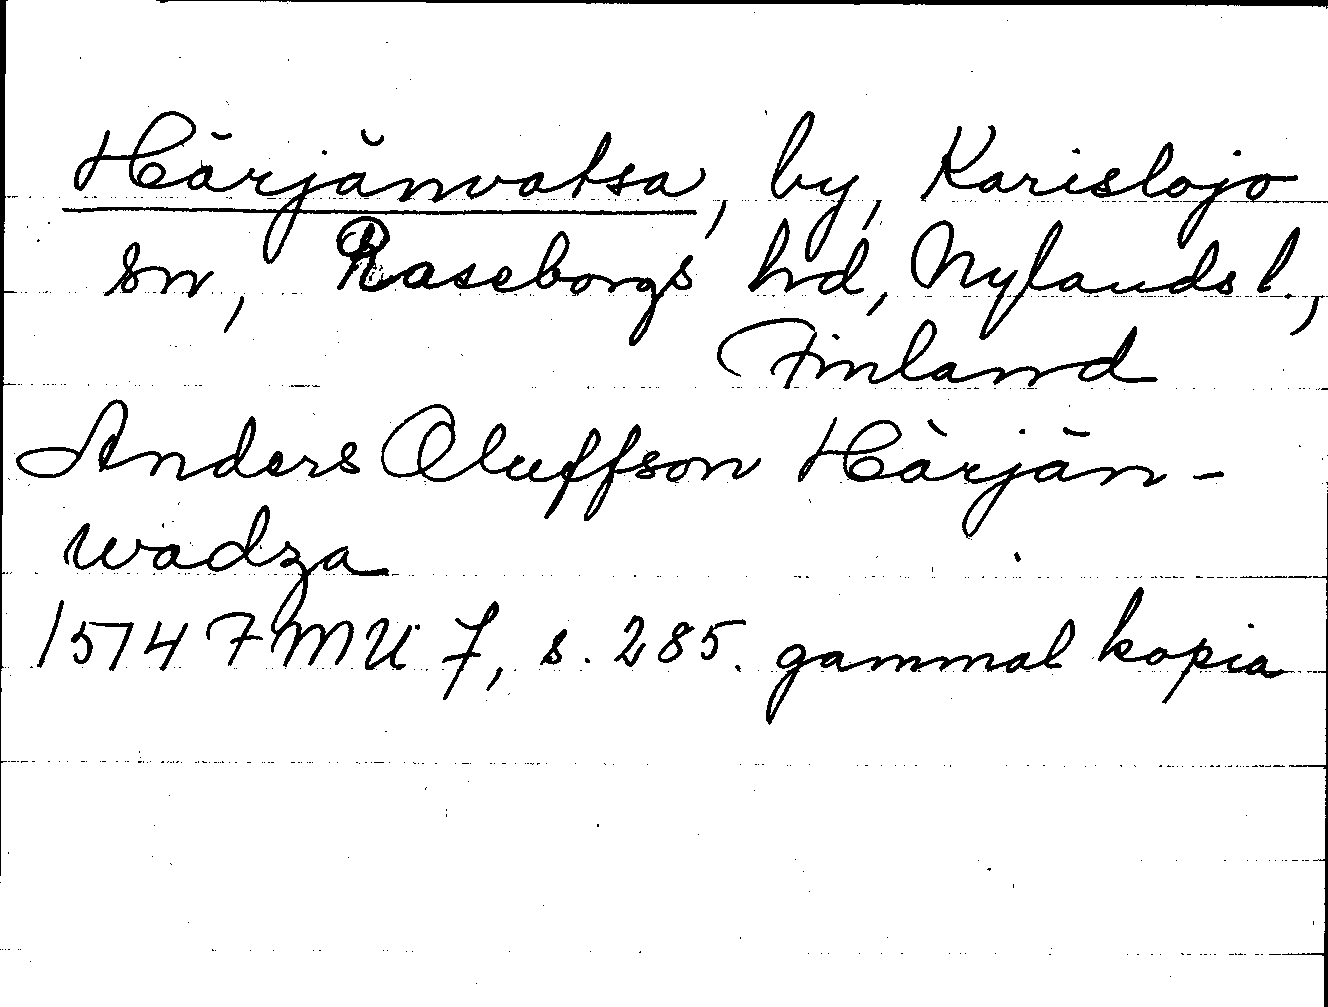 Härjänvatsa, by, Karislojo
sn, Raseborgs hd, Nylands l.,
Finland
Anders Oluffson Härjän-
wadza
1514 FMU 7, s. 285. gammal kopia